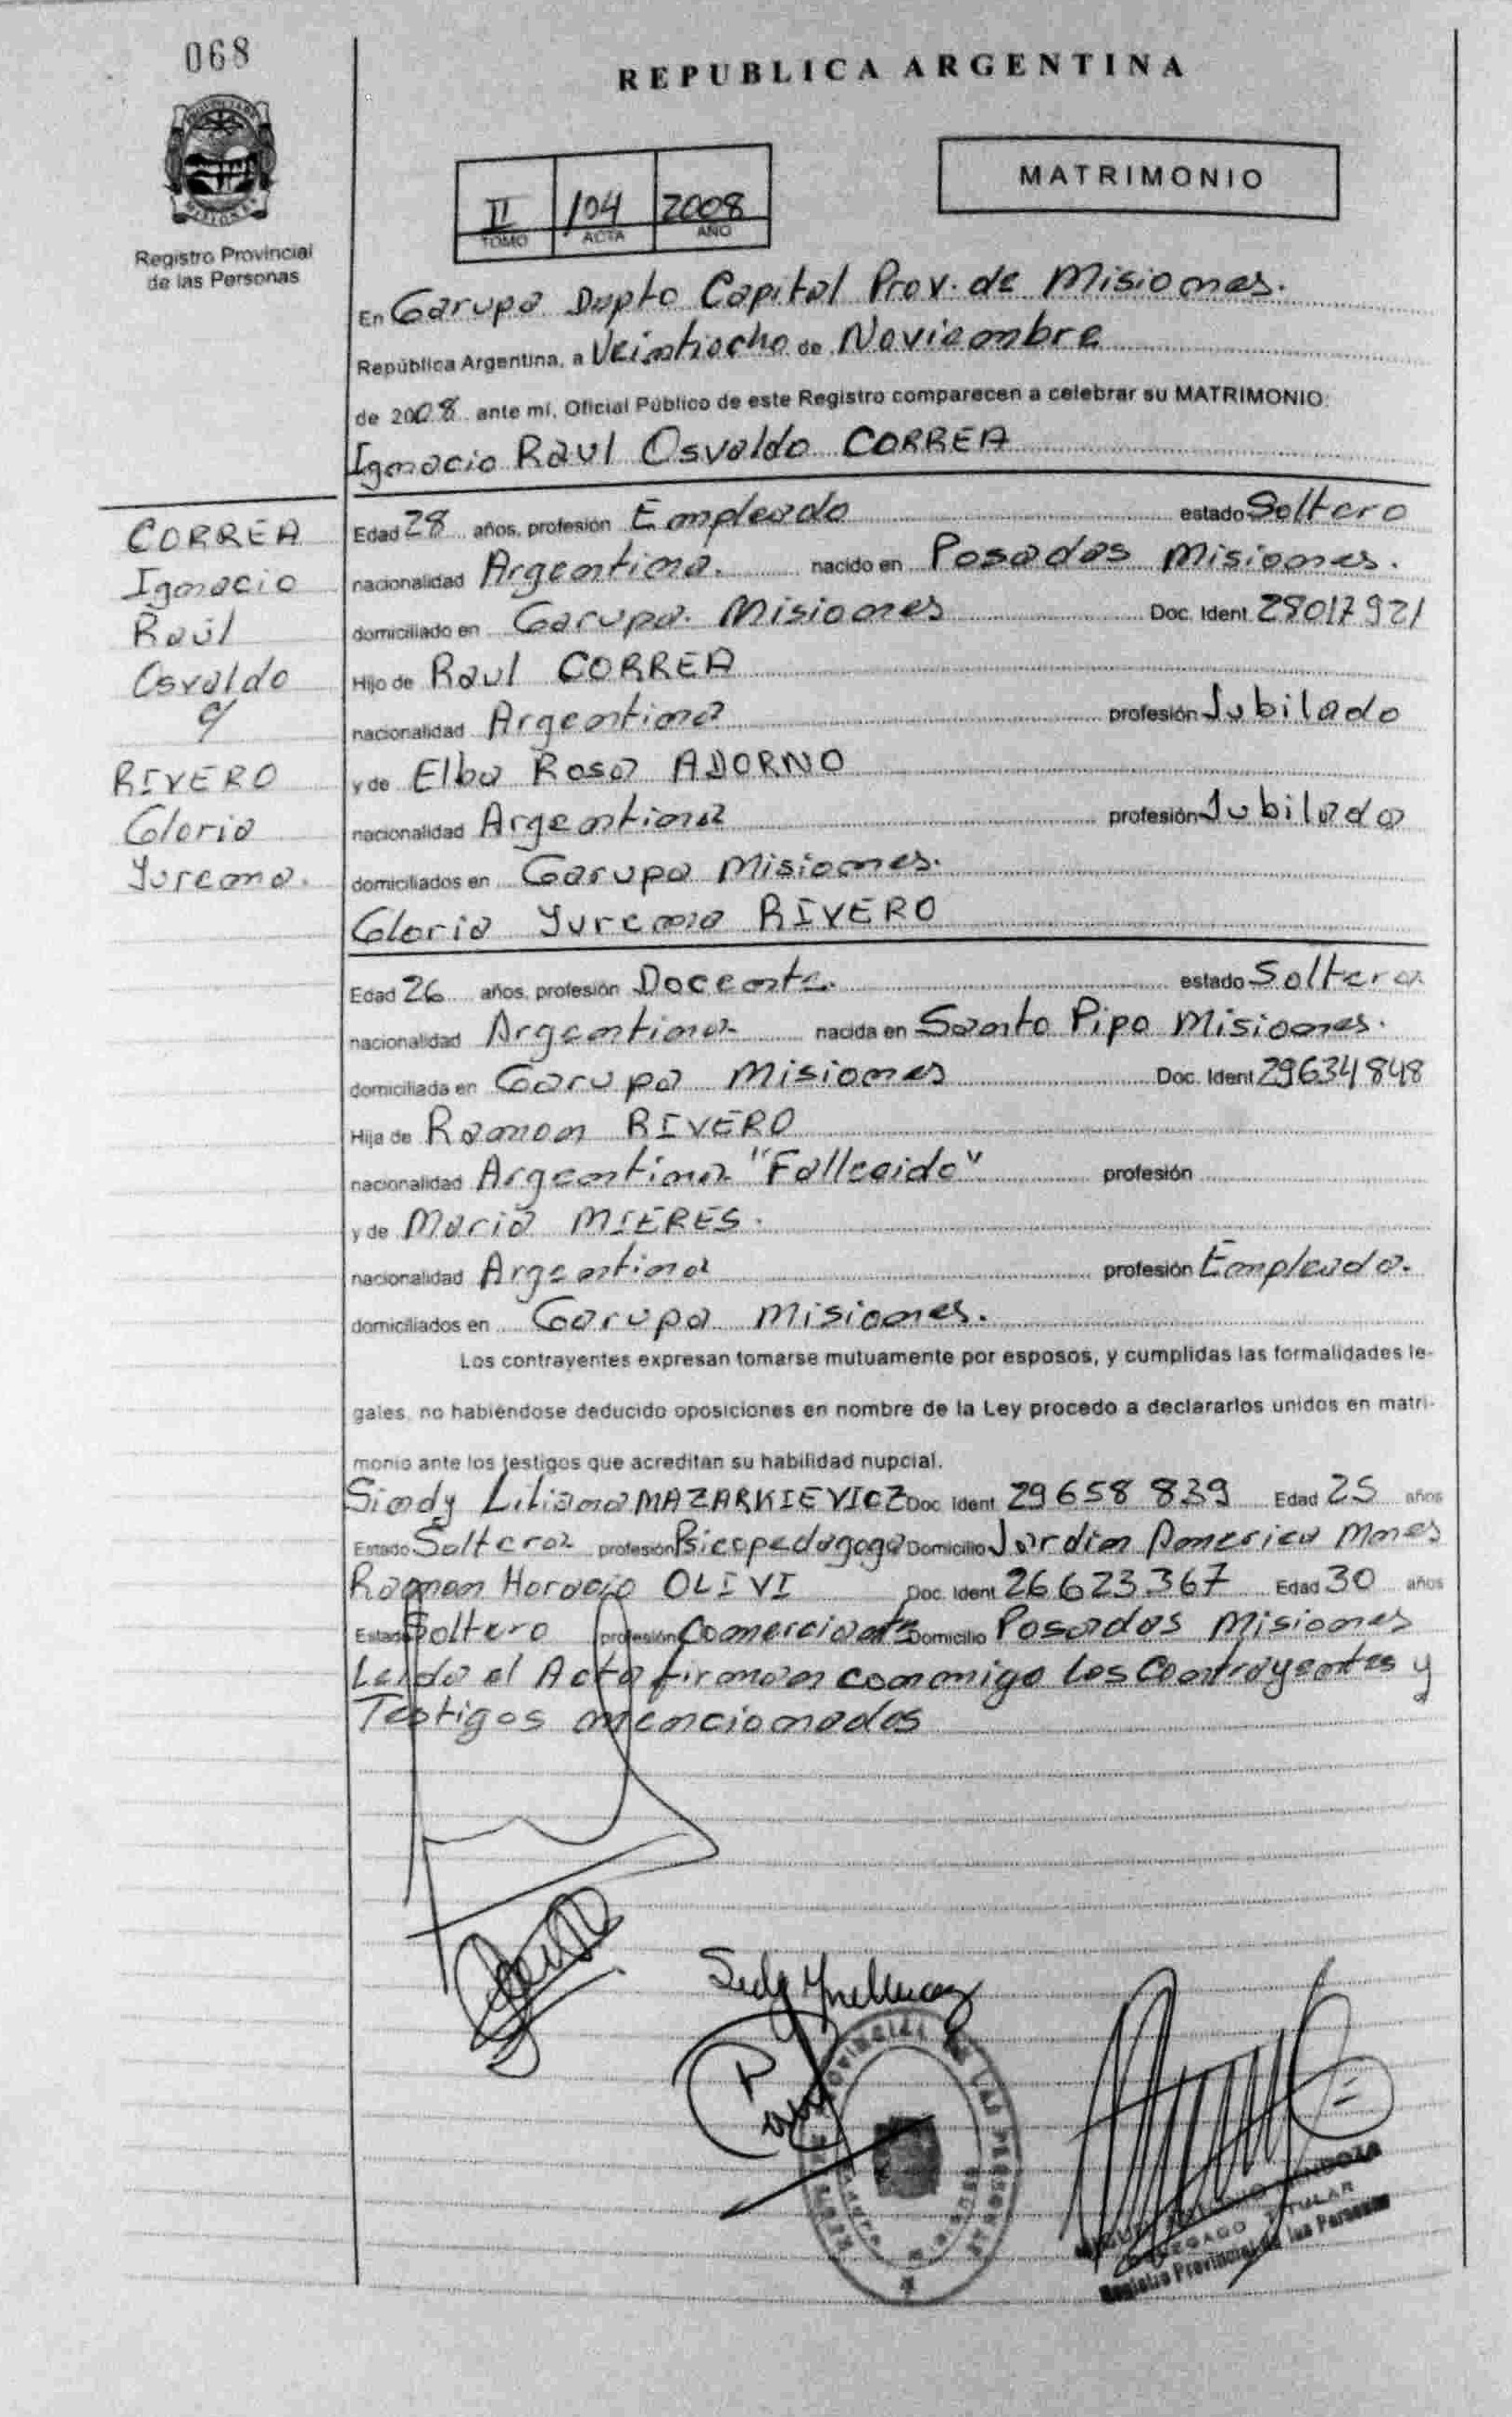 068
REPUBLICA ARGENTINA
MATRIMONIO
II 104 2008
TOMO ACTA AÑO
Registro Provincial
de las Personas
En Garupa Dapto Capital Prov. de Misiones.
República Argentina, a Veintiocho de Noviembre
de 2008 ante mí, Oficial Público de este Registro comparecen a celebrar su MATRIMONIO:
Ignacio Raul Osvaldo CORREA
CORREA
Ignacio
Raúl
Osvaldo
c/
RIVERO
Gloria
Yurema.
Edad 28 años, profesión Empleado estado Soltero
nacionalidad Argentina. nacido en Posadas Misiones.
domiciliado en Garupa. Misiones Doc. Ident. 28017921
Hijo de Raul CORREA
nacionalidad Argentina profesión Jubilado
y de Elba Rosa ADORNO
nacionalidad Argentina profesión Jubilada
domiciliados en Garupa Misiones.
Gloria Yurema RIVERO
Edad 26 años, profesión Docente. estado Soltera
nacionalidad Argentina nacida en Santo Pipo Misiones.
domiciliada en Garupa Misiones Doc. Ident 29634848
Hija de Ramon RIVERO
nacionalidad Argentina "Fallecido" profesión
y de Maria MIERES.
nacionalidad Argentina profesión Empleada.
domiciliados en Garupa Misiones.
Los contrayentes expresan tomarse mutuamente por esposos, y cumplidas las formalidades le-
gales, no habiéndose deducido oposiciones en nombre de la Ley procedo a declararlos unidos en matri-
monio ante los testigos que acreditan su habilidad nupcial.
Sindy Liliana MAZARKIEVICZ Doc. Ident. 29658839 Edad 25 años
Estado Soltera profesión Psicopedagoga Domicilio Jardin America Mnes
Ramon Horacio OLIVI Doc. Ident. 26623.367 Edad 30 años
Estado Soltero profesión Comerciante Domicilio Posadas Misiones
Leida el Acta firman conmigo los Contrayentes y
Testigos mencionados
PROVINCIAL DE LAS PERSONAS
MENDOZA
TITULAR
Registro Provincial de las Personas